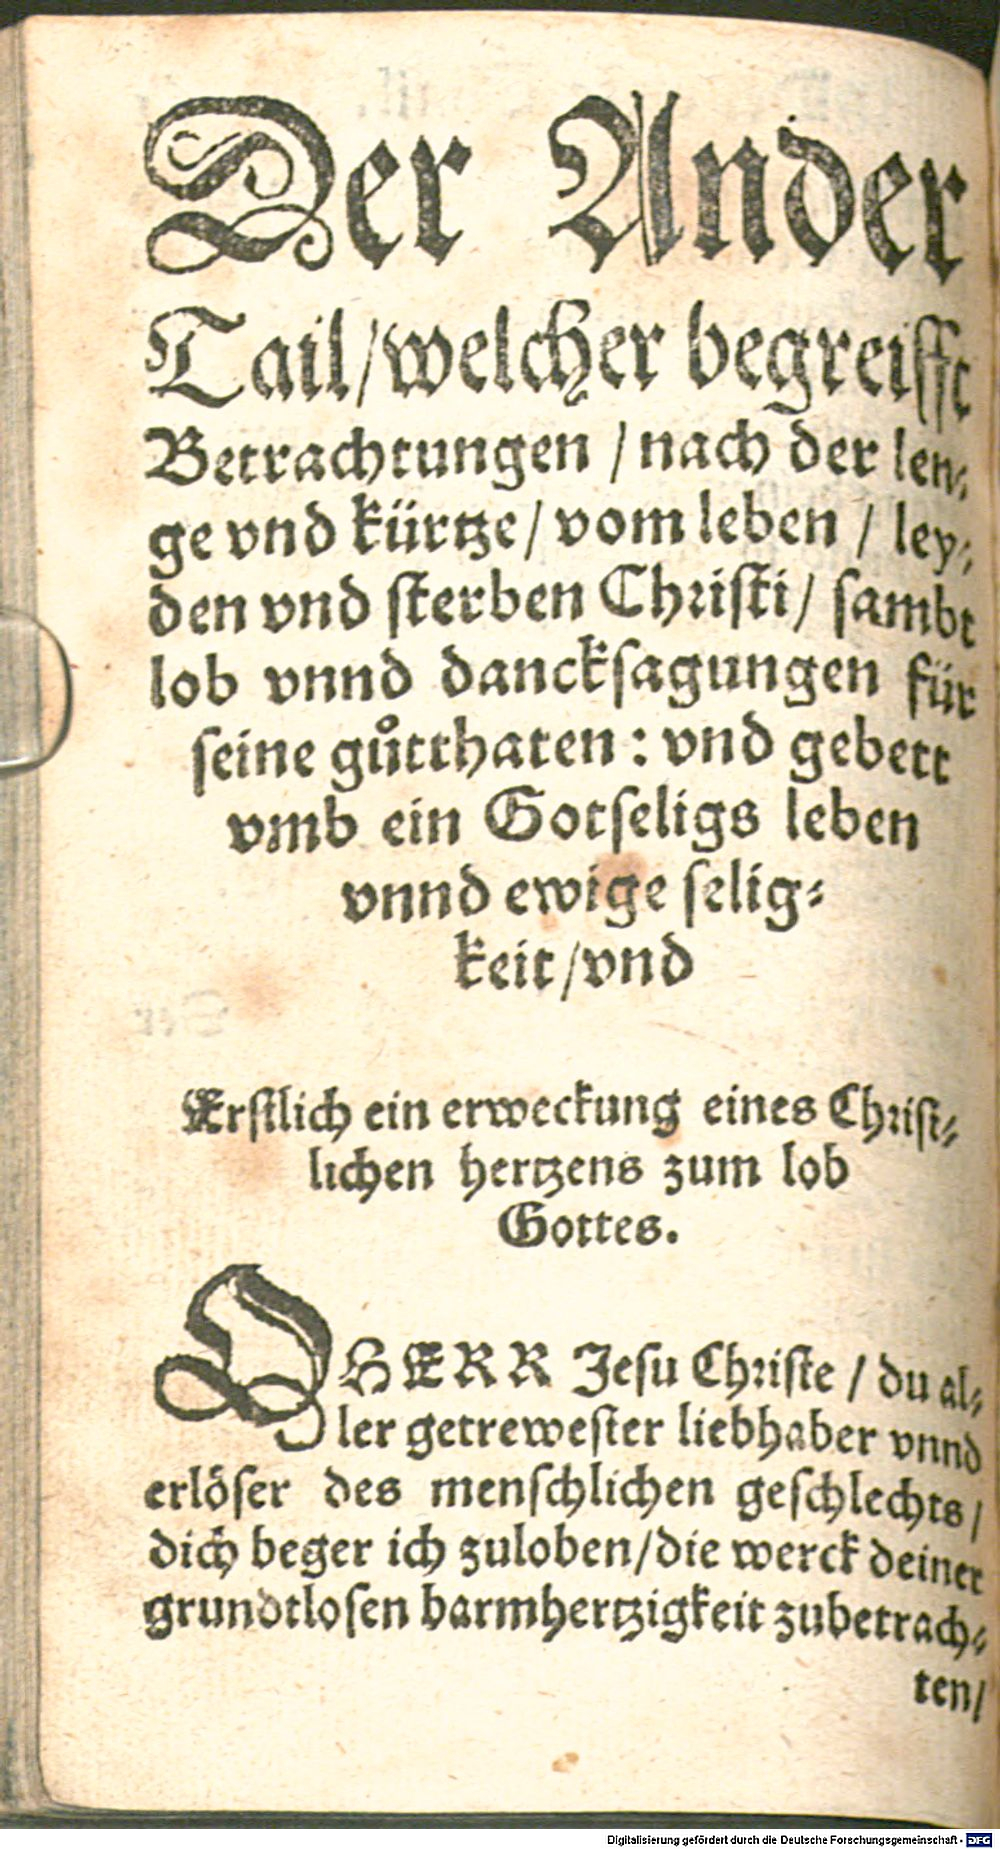 Der Ander
Tail/welcher begreifft
Betrachtungen / nach der len⸗
ge vnd kürtze / vom leben / ley⸗
den vnd sterben Christi / sambt
lob vnnd dancksagungen für
seine gůtthaten : vnd gebett
vmb ein Gotseligs leben
vnnd ewige selig⸗
keit / vnd
Erstlich ein erweckung eines Christ⸗
lichen hertzens zum lob
Gottes.
O HERR Jesu Christe / du al⸗
ler getrewester liebhaber vnnd
erlöser des menschlichen geschlechts /
dich beger ich zuloben/die werck deiner
grundtlosen barmhertzigkeit zubetrach⸗
ten/
Digitalisierung gefördert durch die Deutsche Forschungsgemeinschaft - DFG